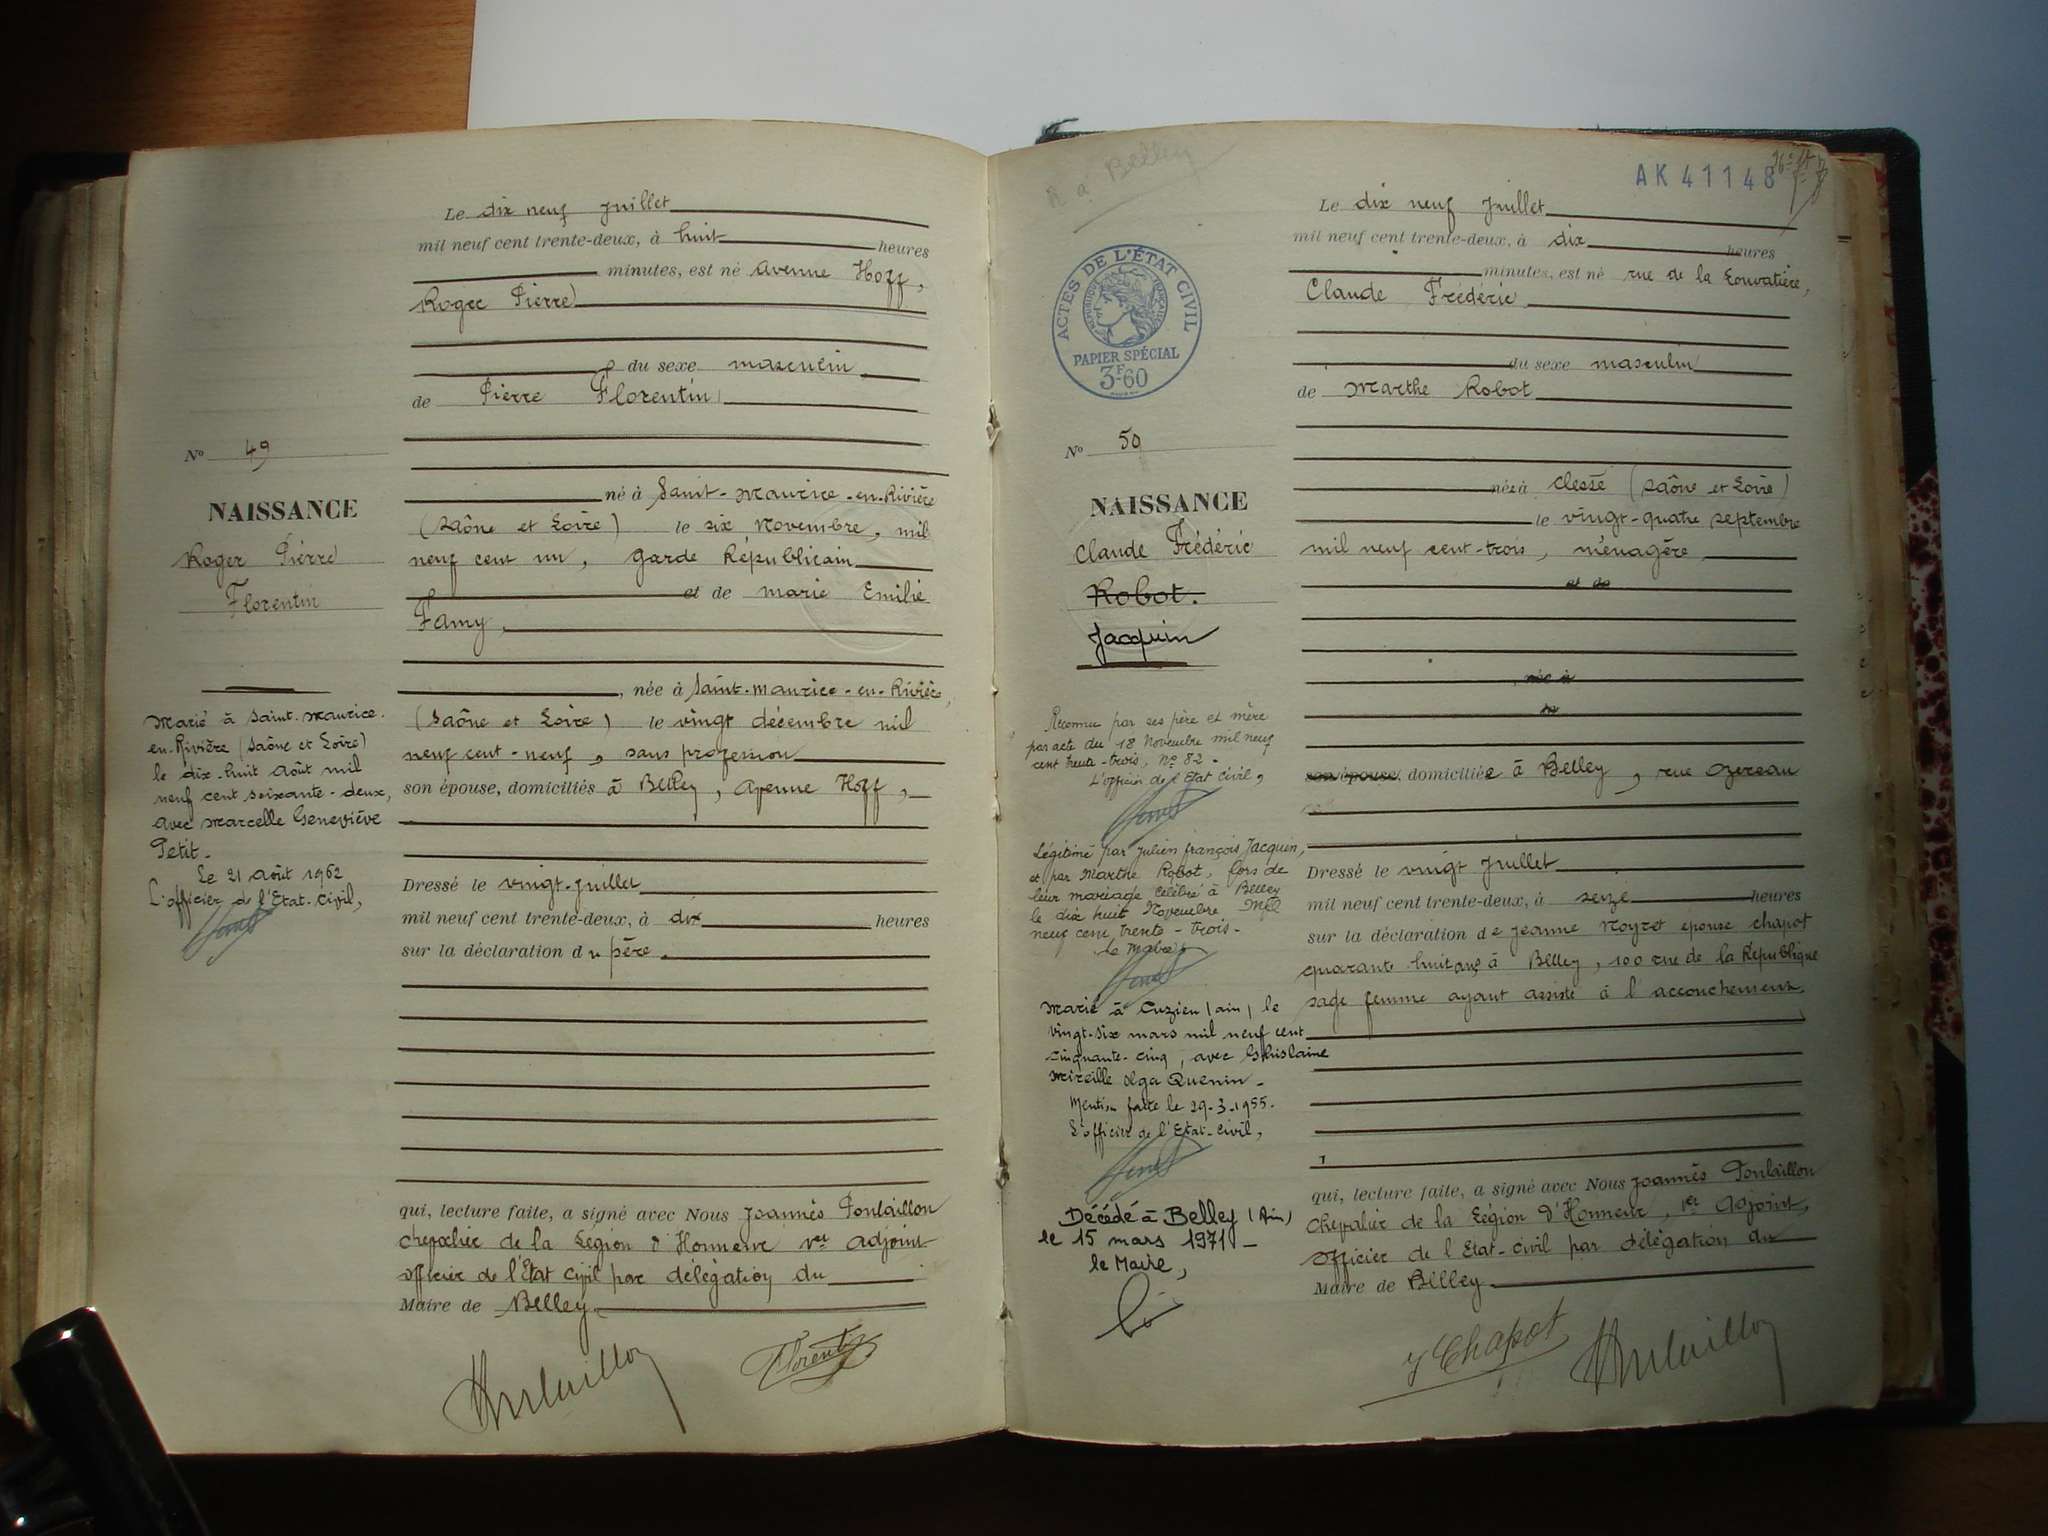 Le dix neuf Juillet
mil neuf cent trente-deux, à huit heures
minutes, est né Avenue Hoff,
Roger Pierre
du sexe masculin
de Pierre Florentin
né à Saint-Maurice-en-Rivière
(Saône et Loire) le six Novembre, mil
neuf cent un, Garde Républicain
et de Marie Emilie
Famy,
, née à Saint-Maurice-en-Rivière,
(Saône et Loire) le vingt décembre mil
neuf cent-neuf, sans profession
son épouse, domiciliés à Belley, Avenue Hoff,
Dressé le vingt-juillet
mil neuf cent trente-deux, à dix heures
sur la déclaration du père.
qui, lecture faite, a signé avec Nous Joannès Ponlaillon
Chevalier de la Légion d'Honneur 1er adjoint
officier de l'Etat civil par délégation du
Maire de Belley
Florentin
No 49
NAISSANCE
Roger Pierre
Florentin
Marié à Saint-Maurice-
en-Rivière (Saône et Loire)
le dix-huit Août mil
neuf cent soixante-deux,
avec Marcelle Geneviève
Petit.
Le 21 Août 1962
L'officier de l'Etat-civil,
R à Belley
AK 41148
ACTES DE L'ÉTAT CIVIL
RÉPUBLIQUE FRANÇAISE
PAPIER SPÉCIAL
3F60
No 50
NAISSANCE
Claude Frédéric
Robot.
Jacquin
Reconnu par ses père et mère
par acte du 18 Novembre mil neuf
cent trente-trois, No 82-
L'officier de l'Etat Civil,
Légitimé par Julien François Jacquin,
et par Marthe Robot, lors de
leur mariage célébré à Belley
le dix huit Novembre mil
neuf cent trente-trois-
le Maire
Marié à Cuzieu (Ain) le
vingt-six mars mil neuf cent
cinquante-cinq, avec Ghislaine
Mireille Olga Quenin-
Mention faite le 29-3-1955.
L'officier de l'Etat-civil,
Décédé à Belley (Ain)
le 15 mars 1971-
le Maire,
Le dix neuf Juillet
mil neuf cent trente-deux, à dix heures
minutes, est né rue de la Louvatière,
Claude Frédéric
du sexe masculin
de Marthe Robot
née à Clessé (Saône et Loire)
le vingt-quatre septembre
mil neuf cent-trois, ménagère
et de
, née à
le
son épouse, domiciliée à Belley, rue
Dressé le vingt Juillet
mil neuf cent trente-deux, à seize heures
sur la déclaration de Jeanne Noyret épouse Chapot
quarante huit ans à Belley, 100 rue de la République
sage femme ayant assisté à l'accouchement.
qui, lecture faite, a signé avec Nous Joannès Ponlaillon
Chevalier de la Légion d'Honneur, 1er Adjoint,
officier de l'Etat-civil par délégation du
Maire de Belley
J Chapot